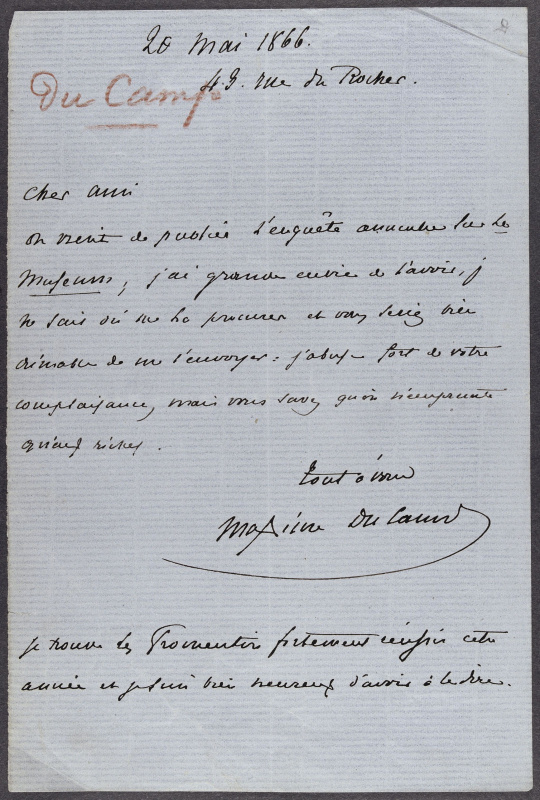 20 mai 1866.
43. rue du Rocher.
Du Camp
cher ami
on vient de publier l'enquête annuelle sur les
Museums, j'ai grande envie de l'avoir, je
ne sais où me la procurer et vous seriez bien
aimable de me l'envoyer : j'abuse fort de votre
complaisance, mais vous savez qu'on n'emprunte
qu'aux riches.
tout à vous
Maxime Du Camp
je trouve les Fromentin fortement réussis cette
année et je suis bien heureux d'avoir à le dire.